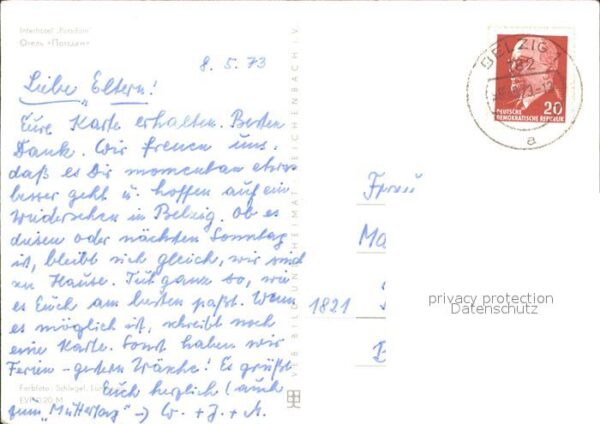 Interhotel "Potsdam"
Отель «Потсдам»
8. 5. 73
Liebe Eltern!
Eure Karte erhalten. Besten
Dank. Wir freuen uns,
daß es Dir momentan etwas
besser geht u. hoffen auf ein
Wiedersehen in Belzig. Ob es
diesen oder nächsten Sonntag
ist, bleibt sich gleich, wir sind
zu Hause. Tut ganz so, wie
es Euch am besten paßt. Wenn
es möglich ist, schreibt noch
eine Karte. Sonst haben wir
Ferien - gestern Wäsche! Es grüßt
Euch herzlich (auch
zum "Muttertag" →) W. + J. + A.
Farbfoto: Schlegel,
EVP 0,20 M
VEB BILD UND HEIMAT REICHENBACH I. V.
BELZIG
182
a
20
DEUTSCHE
DEMOKRATISCHE REPUBLIK
Frau
Ma
1821
privacy protection
Datenschutz